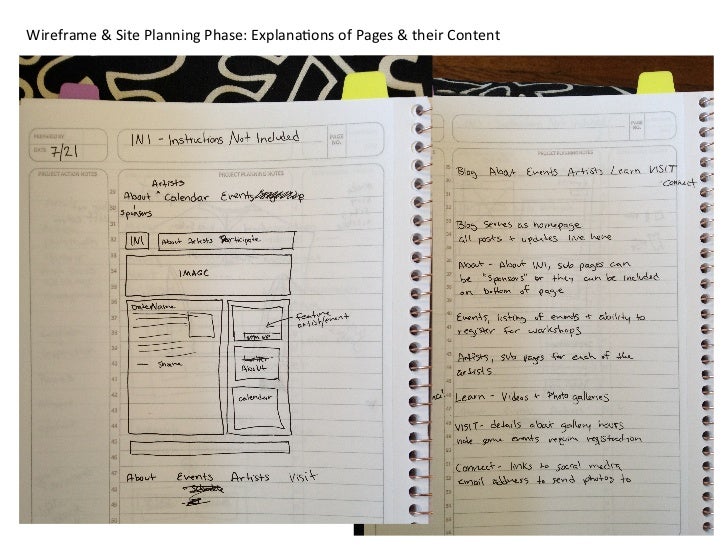 Wireframe & Site Planning Phase: Explanations of Pages & their Content
PREPARED BY
DATE 7/21
INI - Instructions Not Included
PAGE NO.
PROJECT ACTION NOTES
PROJECT PLANNING NOTES
Artists
About ^ Calendar Events
Sponsors
INI
About Artists Participate
IMAGE
Date Name
Share
feature
artist/event
SIGN UP
About
calendar
About Events Artists Visit
PAGE NO.
PROJECT PLANNING NOTES
Blog About Events Artists Learn VISIT
Connect
Blog serves as homepage
all posts + updates live here
About - About INI, sub pages can
be "sponsors" or they can be included
on bottom of page
Events, listing of events + ability to
register for workshops
Artists, sub pages for each of the
artists
Learn - Videos + Photo galleries
VISIT - details about gallery hours
note some events require registration
Connect - links to social media,
email address to send photos to